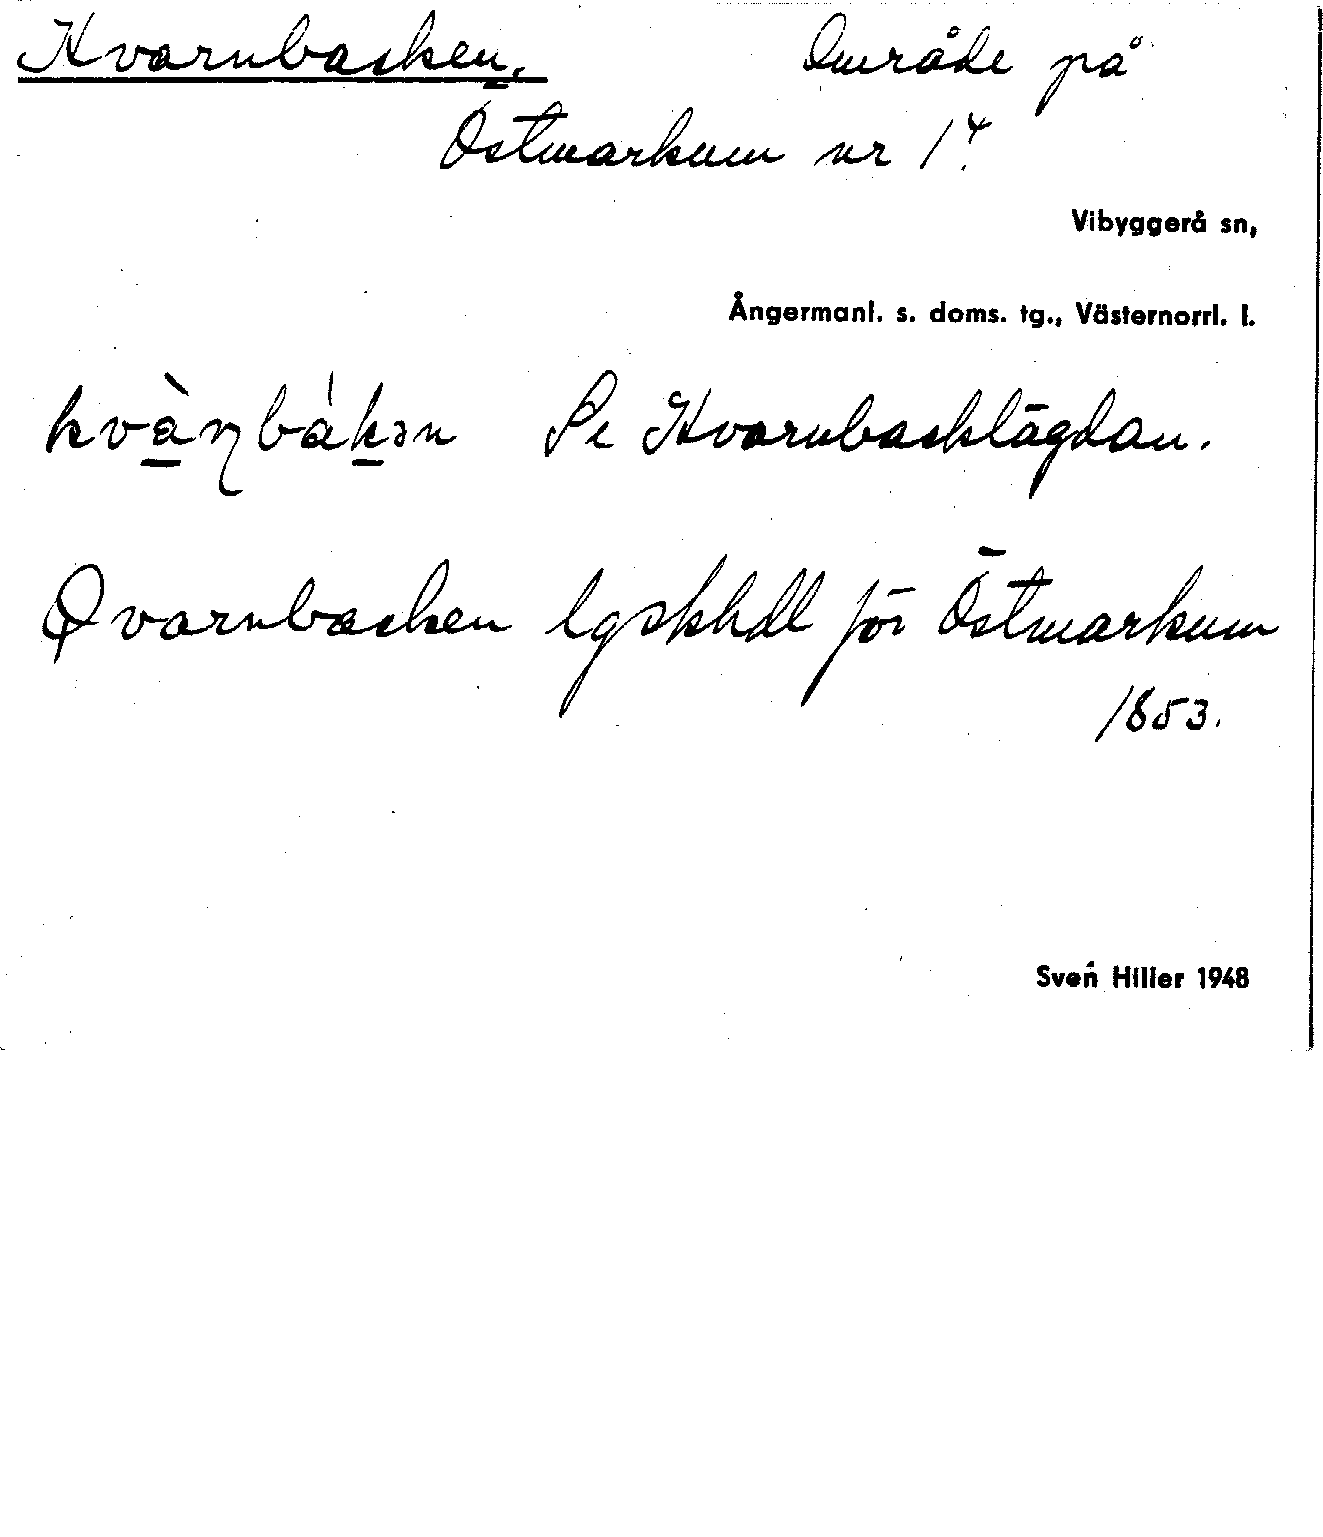 Kvarnbacken. Område på
Östmarkum nr 1⁴.
Vibyggerå sn,
Ångermanl. s. doms. tg., Västernorrl. l.
kvàɳbákən Se Kvarnbacklägdan.
Qvarnbacken lgskhdl för Östmarkum
1853.
Sven Hiller 1948